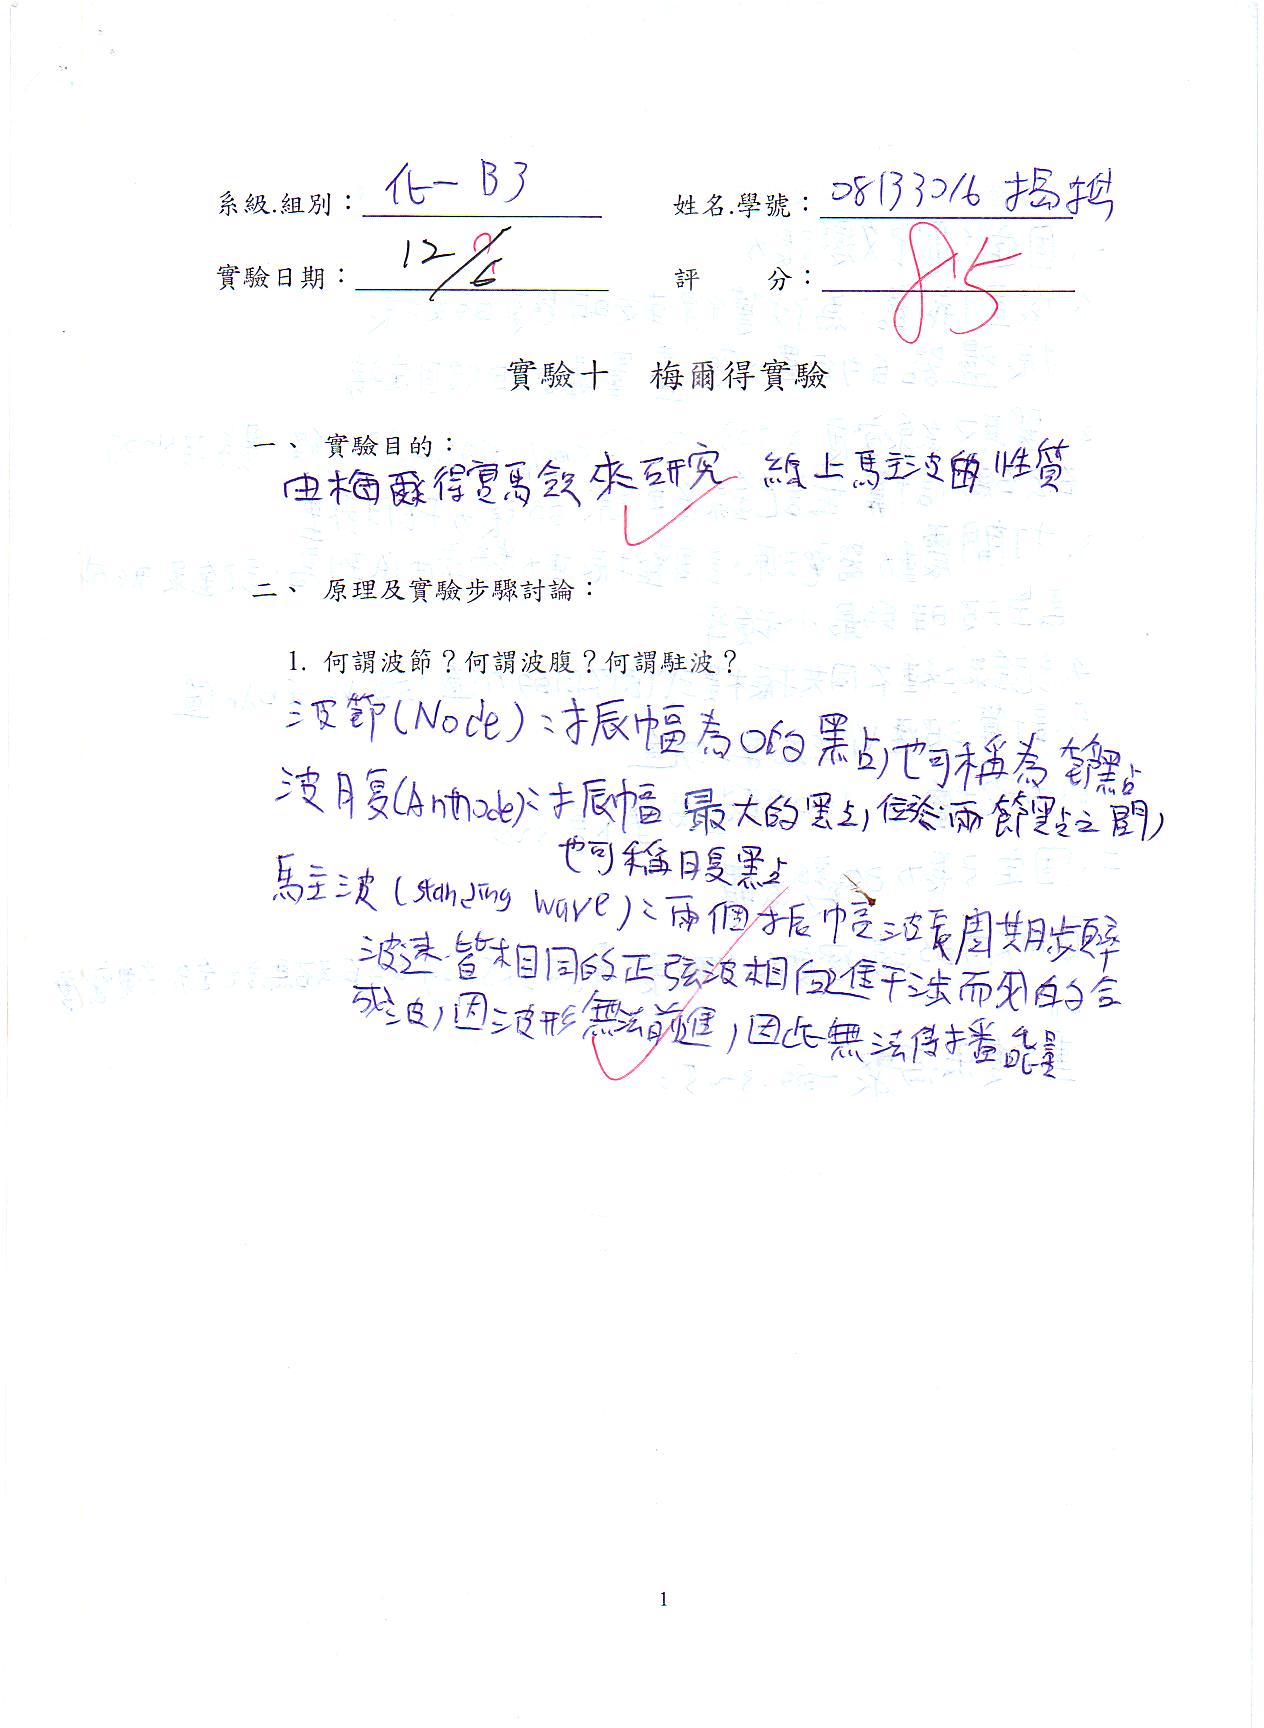 系級.組別：化一 B3
姓名.學號：08133016 楊
實驗日期：12/6
評 分：85
實驗十 梅爾得實驗
一、 實驗目的：
由梅爾得實驗來研究 線上駐波的性質
二、 原理及實驗步驟討論：
1. 何謂波節？何謂波腹？何謂駐波？
波節(Node)：振幅為0的點，也可稱為節點
波腹(Antinode)：振幅最大的點，位於兩節點之間，
也可稱腹點
駐波(standing wave)：兩個振幅波長周期頻率
波速皆相同的正弦波相向進干涉而成的合
成波，因波形無法前進，因此無法傳播能量
1